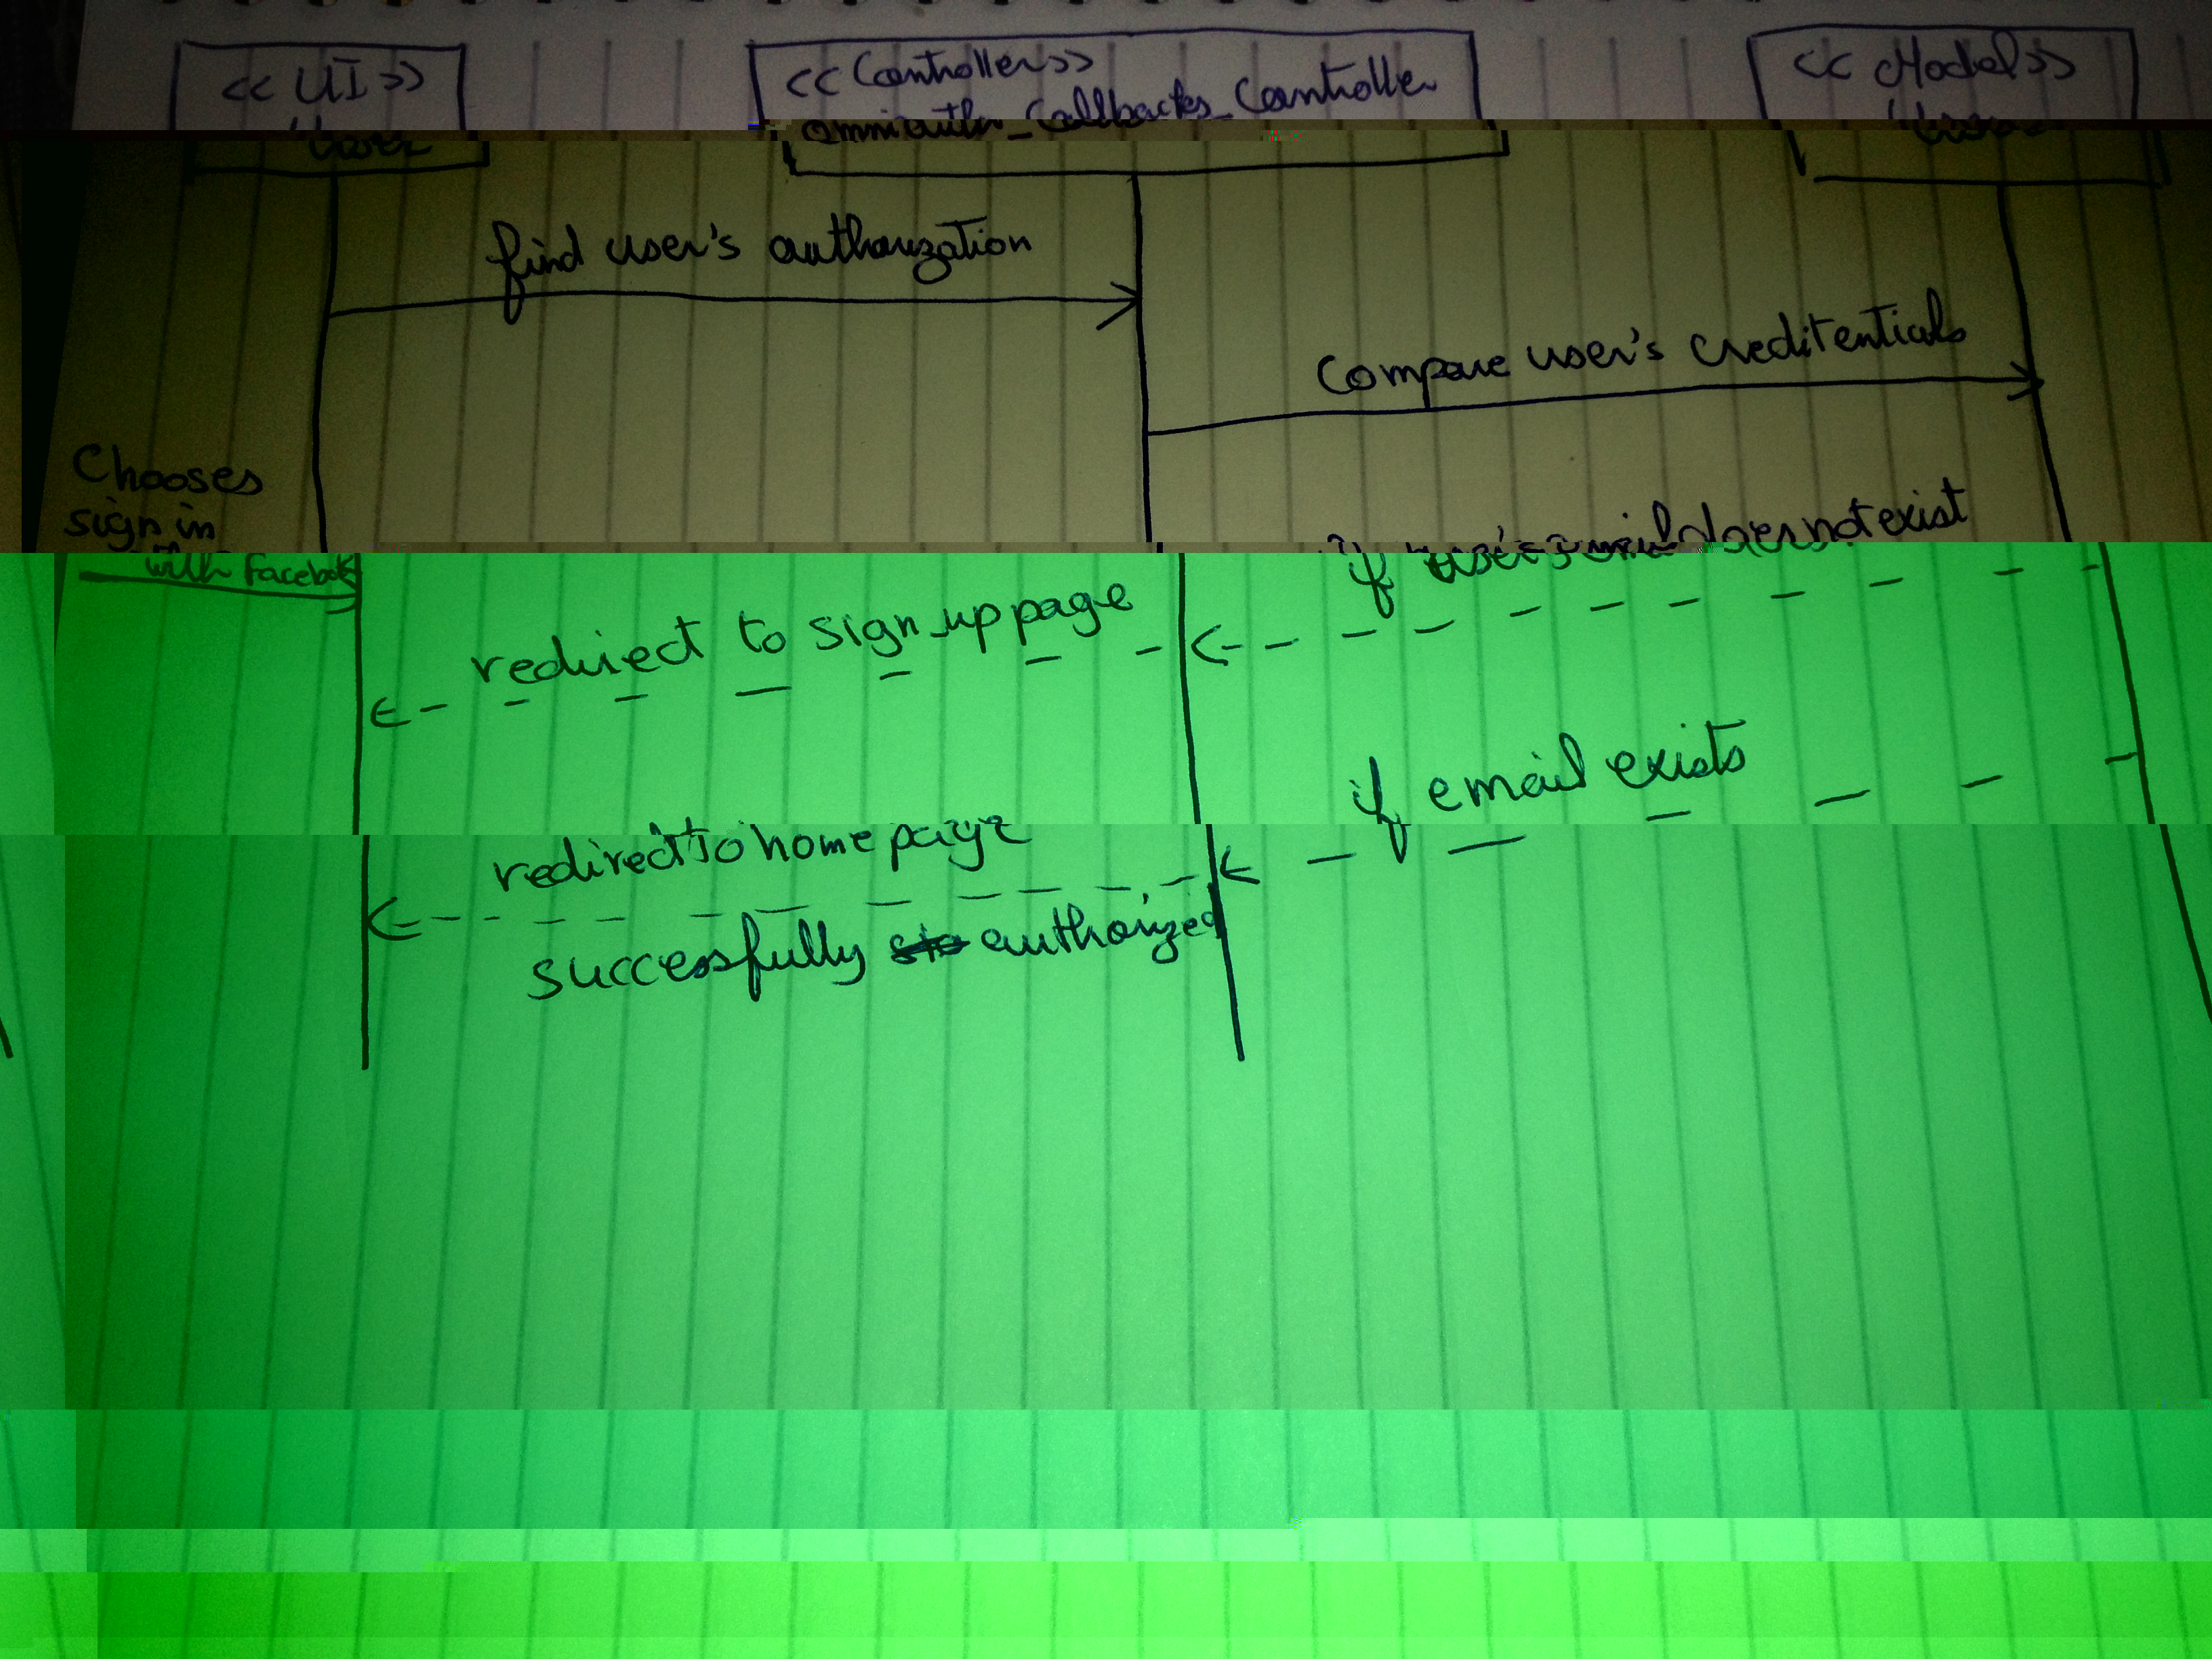 << UI >>
User
<< Controller >>
omniauth_Callbacks_Controller
<< Model >>
User
find user's authorization
Compare user's creditentials
Chooses
sign in
with facebook
if user's email does not exist
redirect to sign_up page
if email exists
redirect to home page
successfully authorized